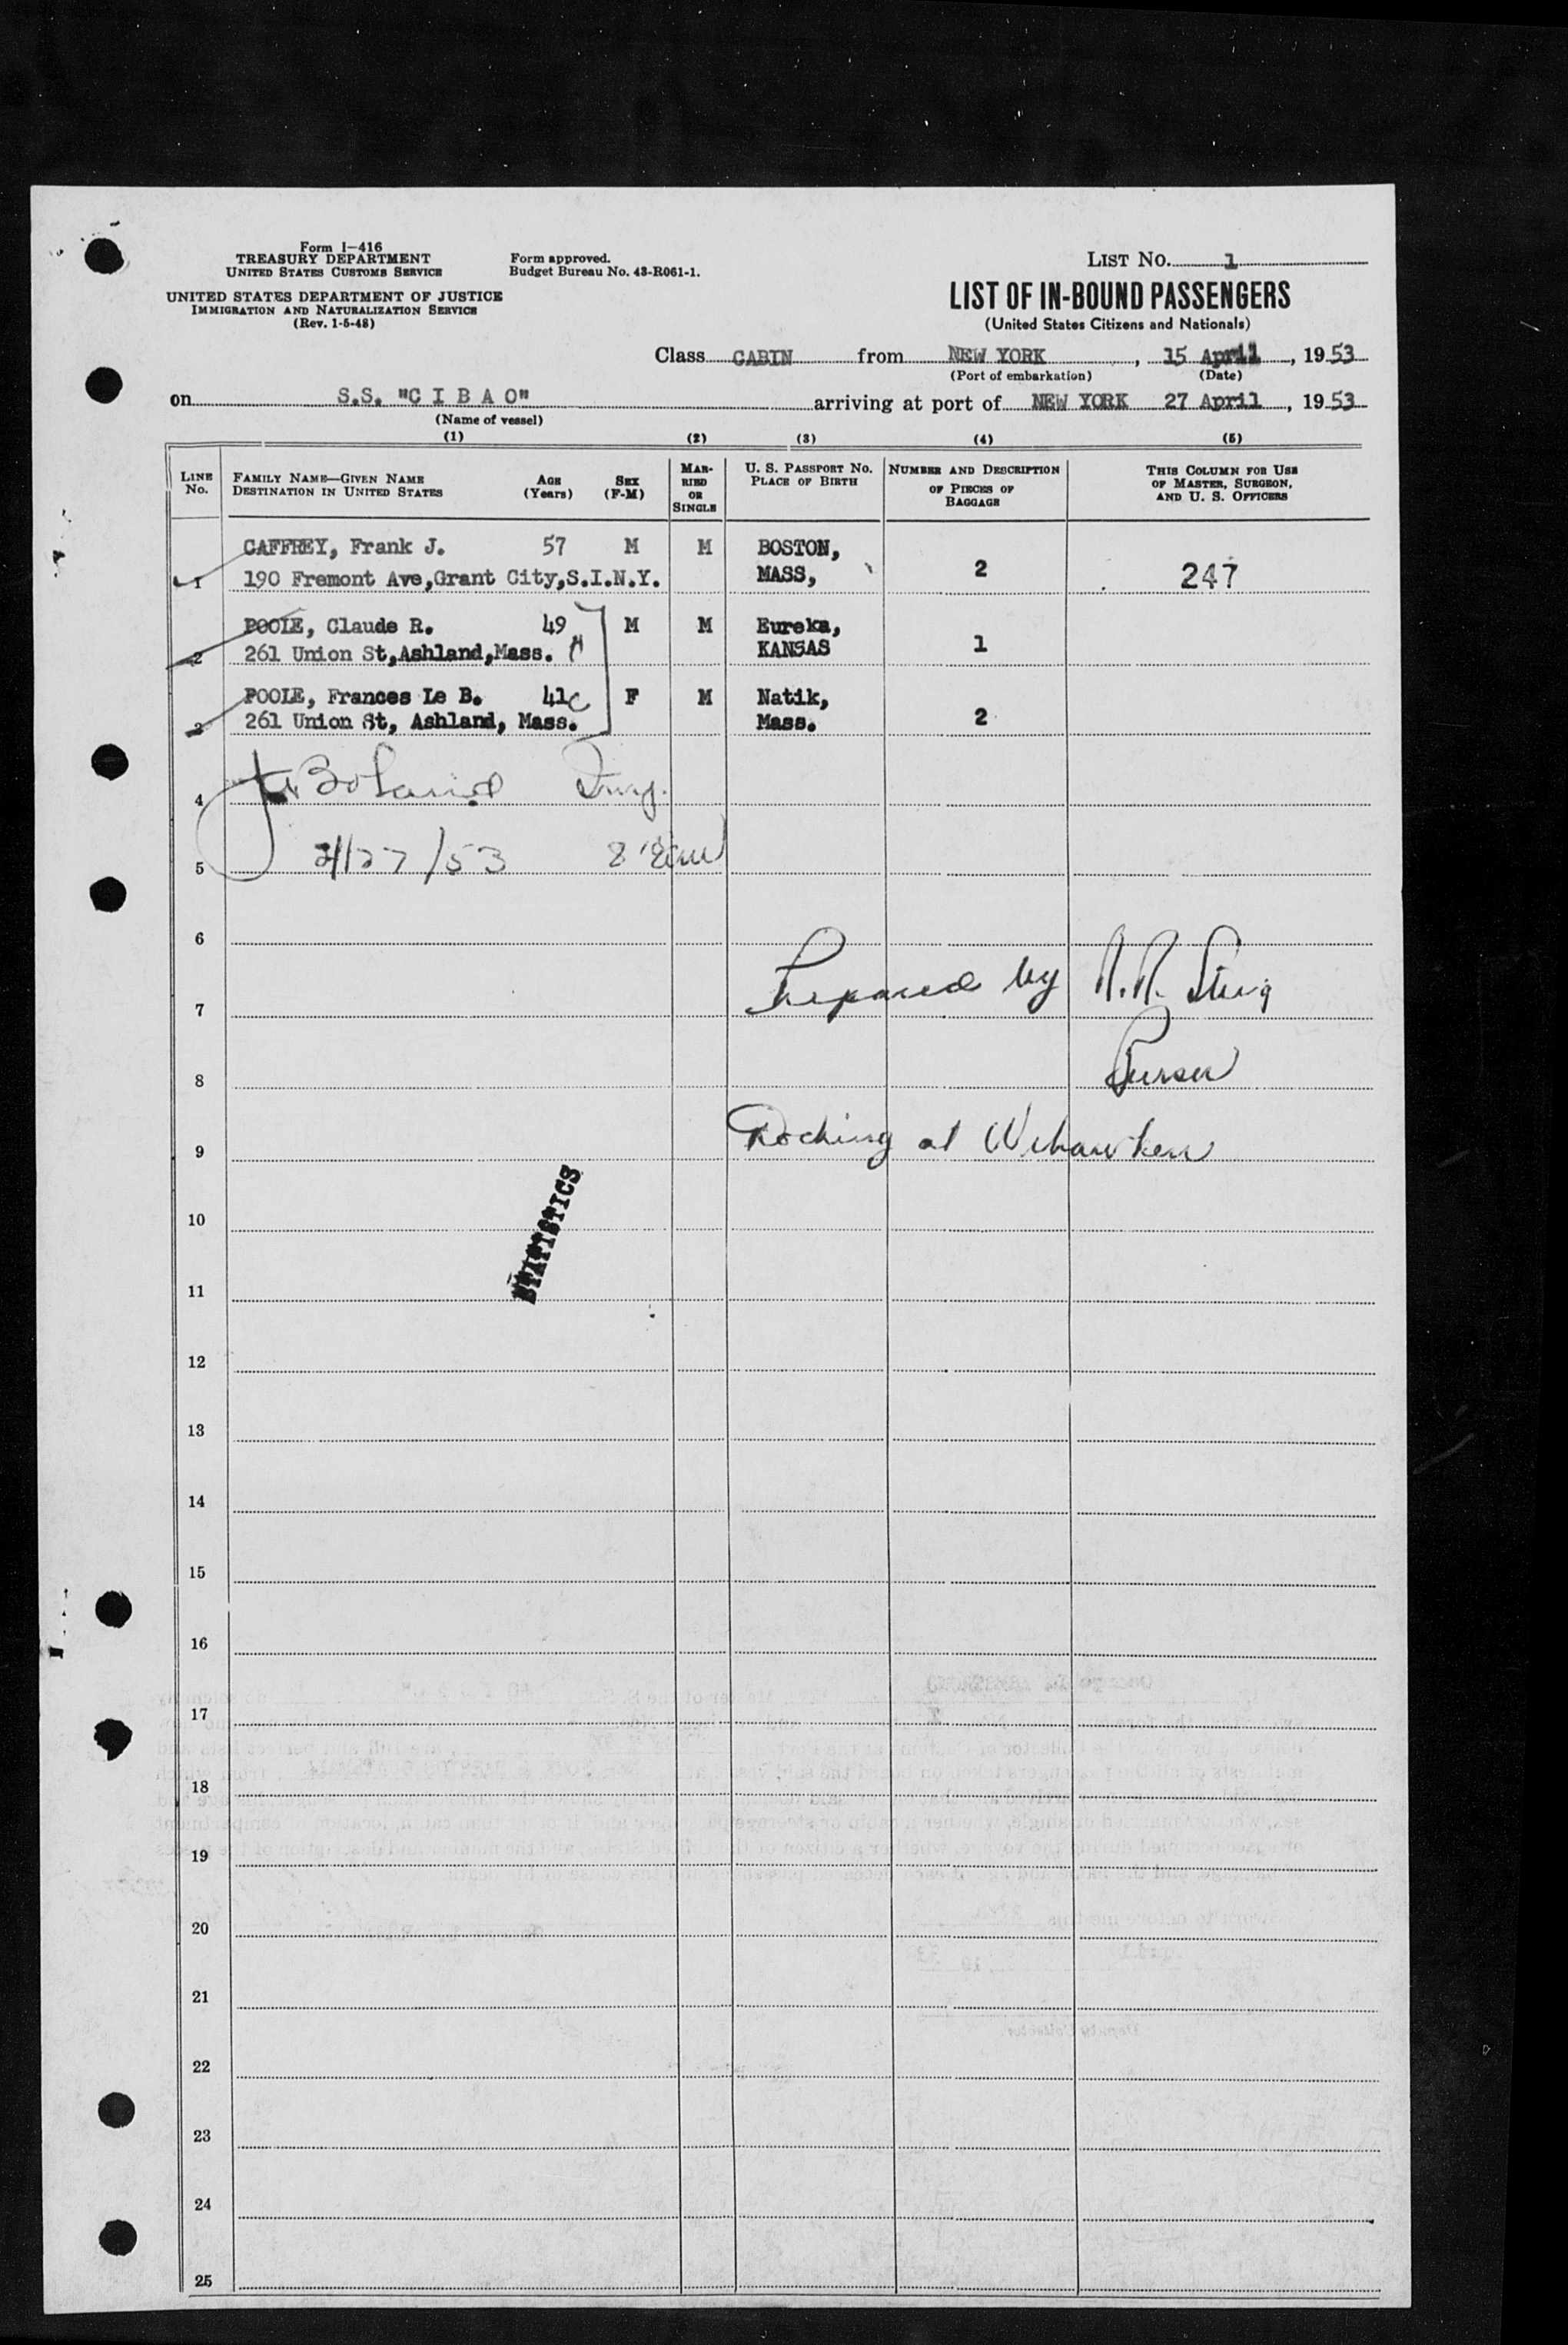 Form I-416
TREASURY DEPARTMENT
UNITED STATES CUSTOMS SERVICE
UNITED STATES DEPARTMENT OF JUSTICE
IMMIGRATION AND NATURALIZATION SERVICE
(Rev. 1-5-48)
Form approved.
Budget Bureau No. 43-R061-1.
LIST NO. 1
LIST OF IN-BOUND PASSENGERS
(United States Citizens and Nationals)
Class CABIN from NEW YORK, 15 April, 1953
(Port of embarkation) (Date)
on S.S. "C I B A O" arriving at port of NEW YORK 27 April, 1953
(Name of vessel)
(1) (2) (3) (4) (5)
LINE No. FAMILY NAME—GIVEN NAME DESTINATION IN UNITED STATES AGE (Years) SEX (F-M) MARRIED OR SINGLE U. S. PASSPORT NO. PLACE OF BIRTH NUMBER AND DESCRIPTION OF PIECES OF BAGGAGE THIS COLUMN FOR USE OF MASTER, SURGEON, AND U. S. OFFICERS
CAFFREY, Frank J. 57 M M BOSTON,
1 190 Fremont Ave,Grant City,S.I.N.Y. MASS, 2 247
POOLE, Claude R. 49 M M Eureka,
2 261 Union St,Ashland,Mass. KANSAS 1
POOLE, Frances Le B. 41 F M Natik,
3 261 Union St, Ashland, Mass. Mass. 2
4 Boland
5 4/27/53
6
7 Prepared by
8 Purser
9 Docking at Wehawken
10
STATISTICS
11
12
13
14
15
16
17
18
19
20
21
22
23
24
25